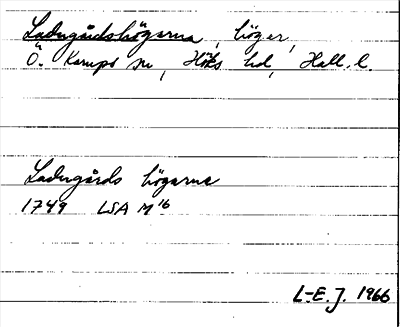 Ladugårdshögarna, höger,
Ö. Karups sn, Höks hd, Hall. l.
Ladugårds högarna
1749 LSA M 16
L-E. J. 1966